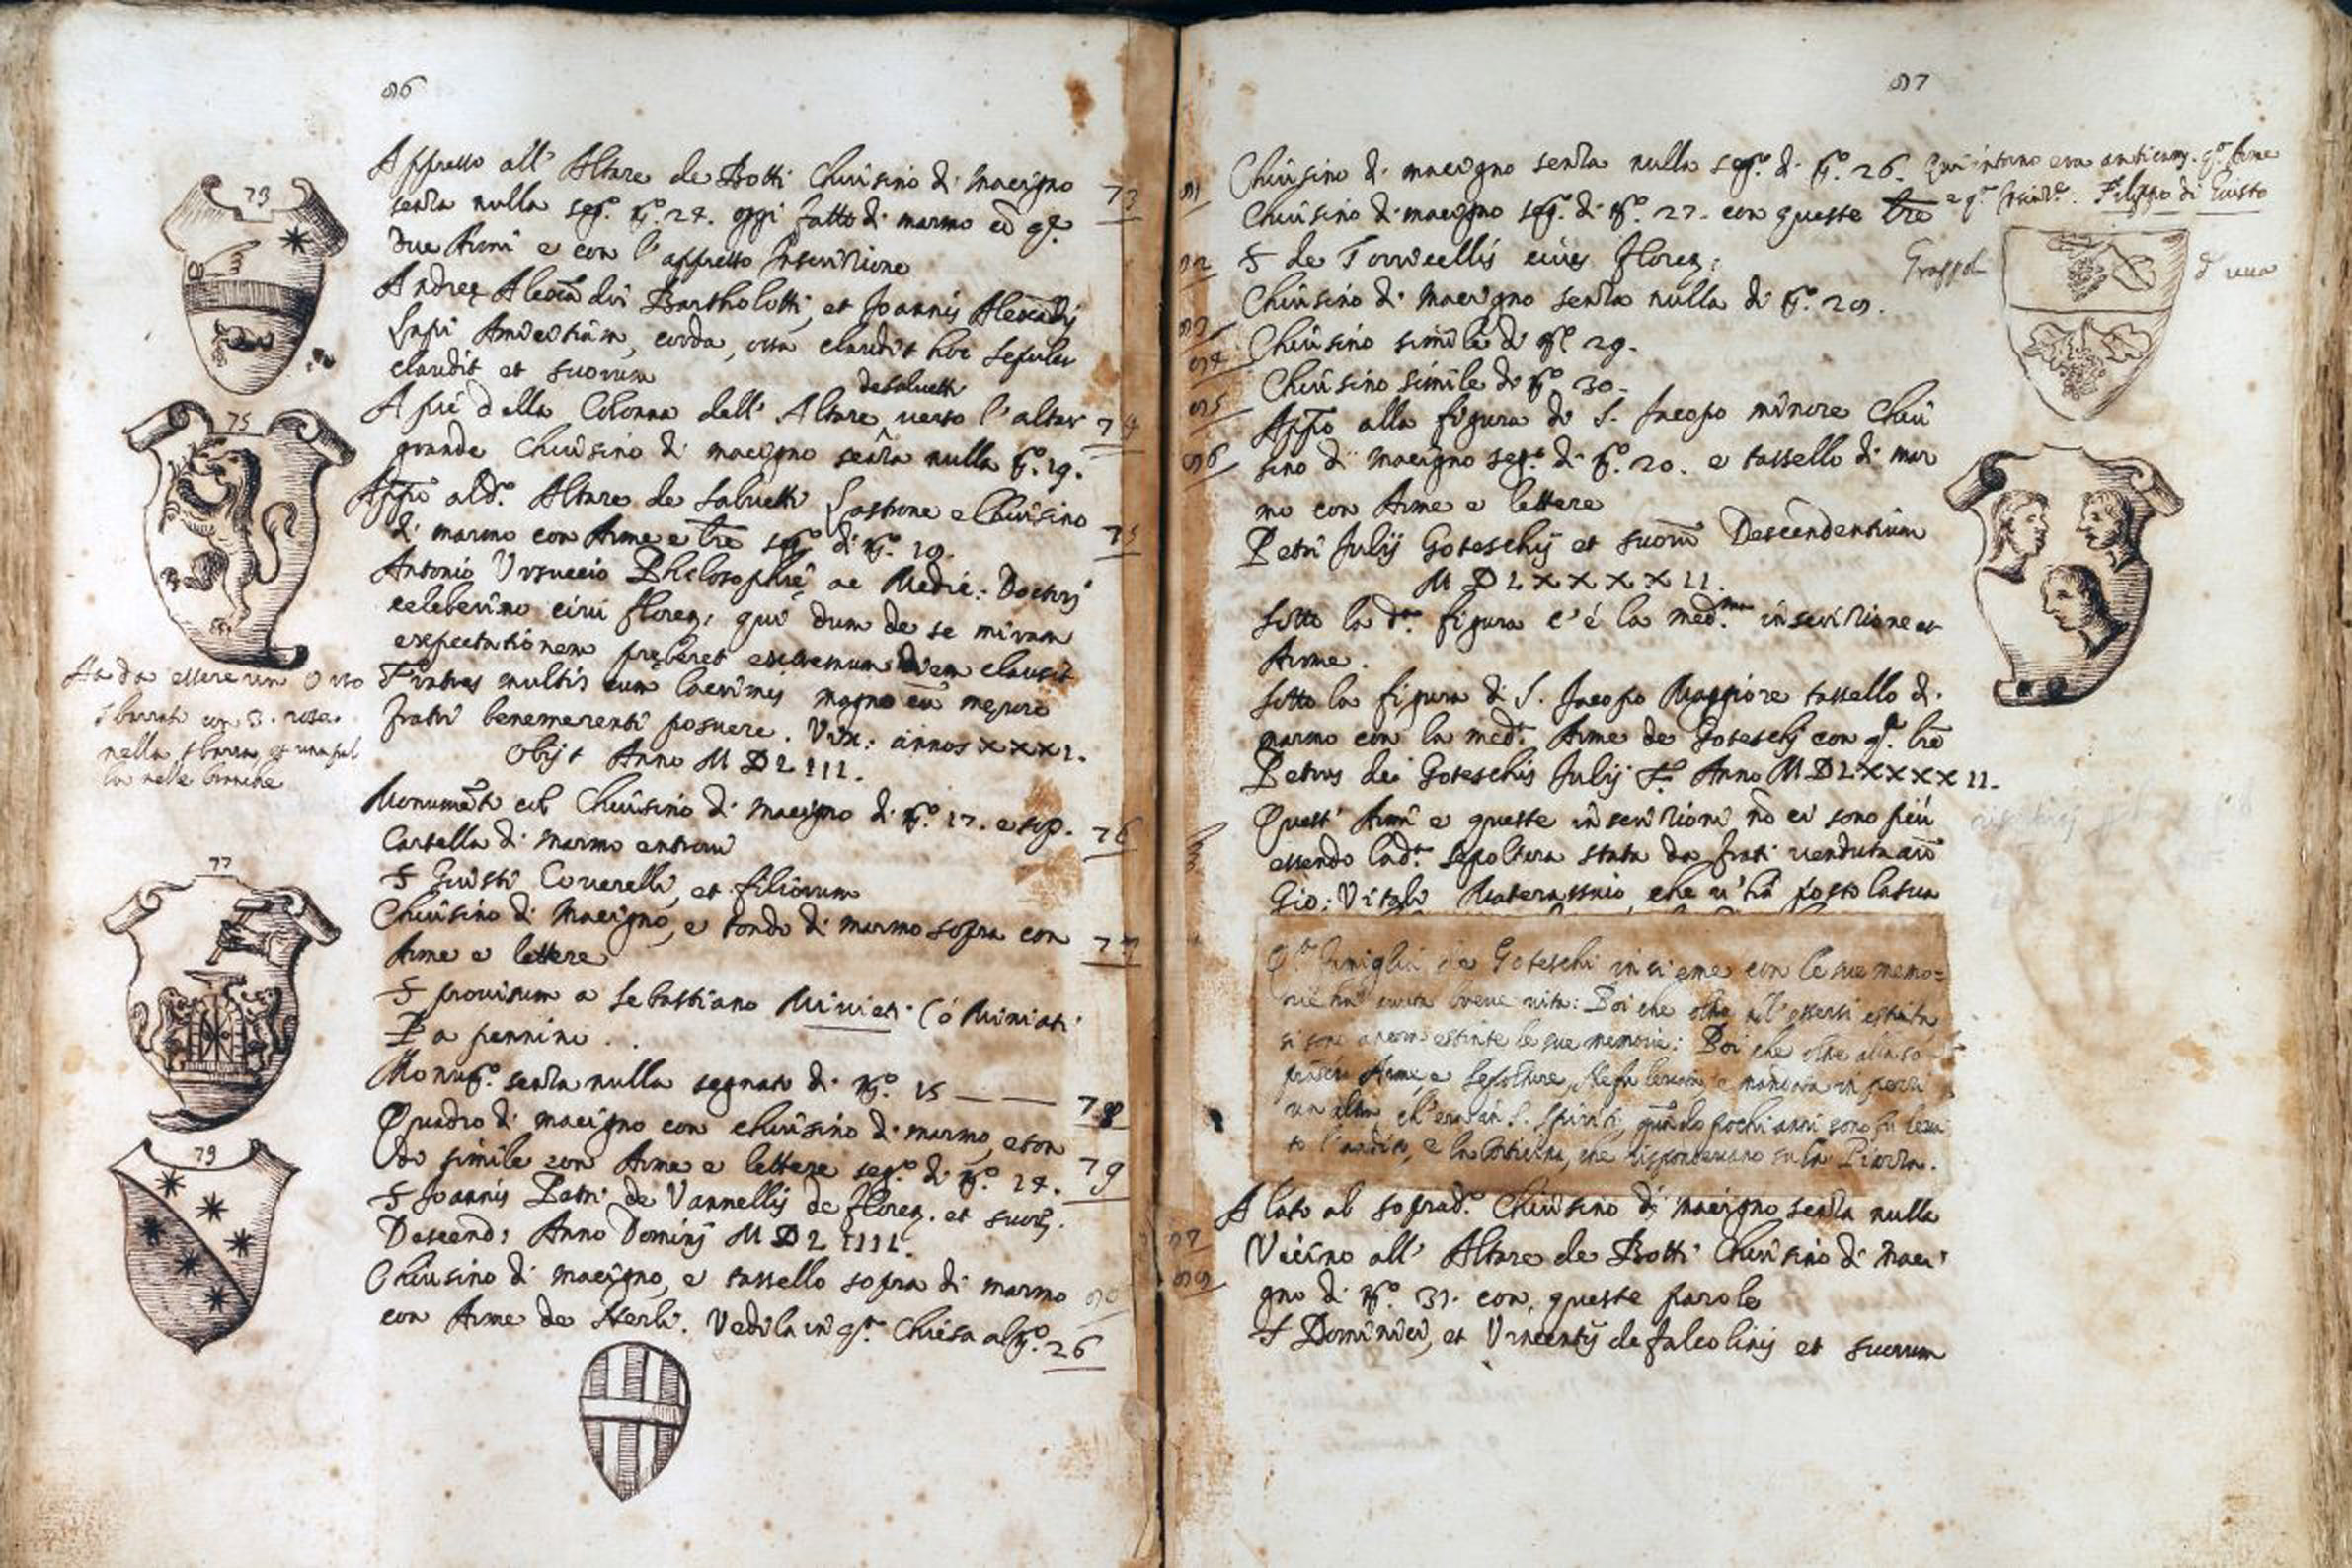 96
Appresso all' Altare de Botti Chiusino di Macigno
senza nulla seg.o N.o 24. oggi fatto di marmo cō q.te
due Armi e con l'appresso Inscrizione
73
Andreę Alexādri Bartholotti, et Joannis Alexādri
Lapi Amicitiam, corda, ossa claudit hoc Sepulcr
claudit et suorum
A piè della Colonna dell' Altare de Salvetti verso l'altar
grande Chiusino di macigno sēza nulla N.o 19.
74
App.o al d.o Altare de Salvetti Lastrone e Chiusino
di marmo con Arme e lr̄e seg.o di N.o 10.
75
Antonio Ursuccio Philosophię ac Medic: Doctori
celeberimo civi floren: qui dum de se miram
expectationem pręberet extremum diem clausit
Fratres multis cum lacrimis magno cū merore
fratri benemerenti posuere. Vix: annos XXXI.
Obijt Anno MDLIII.
Monumēto cō Chiusino di macigno di N.o 17. e sop.
Cartella di marmo entrovi
76
S Giusti Coverelli, et filiorum
Chiusino di Macigno, e tondo di marmo sopra con
Arme e lettere
77
S provisum a Sebastiano Miniati (ò Miniati
Pa pennini . .
Monum.to senza nulla segnato di N.o 15
78
Quadro di macigno con chiusino di marmo, e ton
do simile con Arme e lettere seg.o di N.o 14.
79
S Joannis Patri de Vannellis de floren. et suor.
Descend: Anno Domini MDLIIII.
Chiusino di macigno, e tassello sopra di marmo
con Arme de Nerli. Vedila in q.ta Chiesa al N.o 26
73
75
Ha da essere un Orso
sbarrato con 3. rose
nella sbarra et una pal
la nelle branche
77
79
97
Chiusino di macigno senza nulla seg.o di N.o 26. Qui intorno era anticam. q.ta Arme
e q.ta Inscriz.e. Filippo di Giusto
91
Chiusino di macigno seg.o di N.o 27. con queste lr̄e
92
S de Torricellis civis floren:
Grappol d'uva
Chiusino di Macigno senza nulla di N.o 29.
93
Chiusino simile di N.o 29.
94
Chiusino simile di N.o 30.
95
App.o alla figura di S. Jacopo minore Chiu
sino di Macigno seg.o di N.o 20. e tassello di mar
mo con Arme e lettere
96
Petri Julij Goteschi et suorū Descendentium
MDLXXXXII.
Sotto la d.a figura c'è la med.ma inscrizione et
Arme.
Sotto la figura di S. Jacopo Maggiore tassello di
marmo con la med.a Arme de Goteschi con q.te lr̄e
Petrus de Goteschis Julij F. Anno MDLXXXXII.
Quest' Armi e queste inscrizioni nō ci sono più
essendo la d.a sepoltura stata da frati venduta a
Gio: Vitali Materassaio, che v'hà posto la sua
Q.ta famiglia de Goteschi insieme con le sue memo=
rie hà avuta breve vita: Poi che oltre all'essersi estinta,
si sono ancora estinte le sue memorie: Poi che oltre alla so-
praddetta Arme, e Sepolture, fu levata, e mandata in pezzi
un altra, ch'era in S. Spirito, quando pochi anni sono fu leva
to l'andito, e la Porticina, che rispondevano su la Piazza.
A lato al soprad.o Chiusino di macigno senza nulla
97
Vicino all' Altare de Botti Chiusino di Maci
gno di N.o 31. con queste parole
99
S Dominici, et Vincentij de falcolinis et suorum